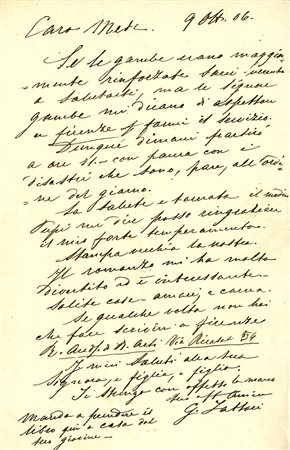 Caro Mede. 9 Ott. 06.
Se le gambe erano maggior-
-mente rinforzate sarei venuto
a salutarti, ma le signore
gambe mi dicano d'aspettare
a firenze p farmi il servizio.
Dunque dimani partirò
a ore 11 - con paura con i
disastri che sono, pare, all'ordi-
ne del giorno.
La salute è tornata il
mi dice posso ringraziare
il mio forte temperamento.
Stampa vecchia la nostra.
Il romanzo mi ha molto
divertito ed è interessante.
Solite cose - amori, e corna.
Se qualche volta non hai
che fare scrivimi a firenze
R. di B. Arti Via Ricasoli 54
I miei saluti alla tua
Signora, e figlia, e figlio.
Ti stringo con affetto la mano
tuo aff. Amico
G. Fattori
Manda a prendere il
libro qui a casa del
tuo